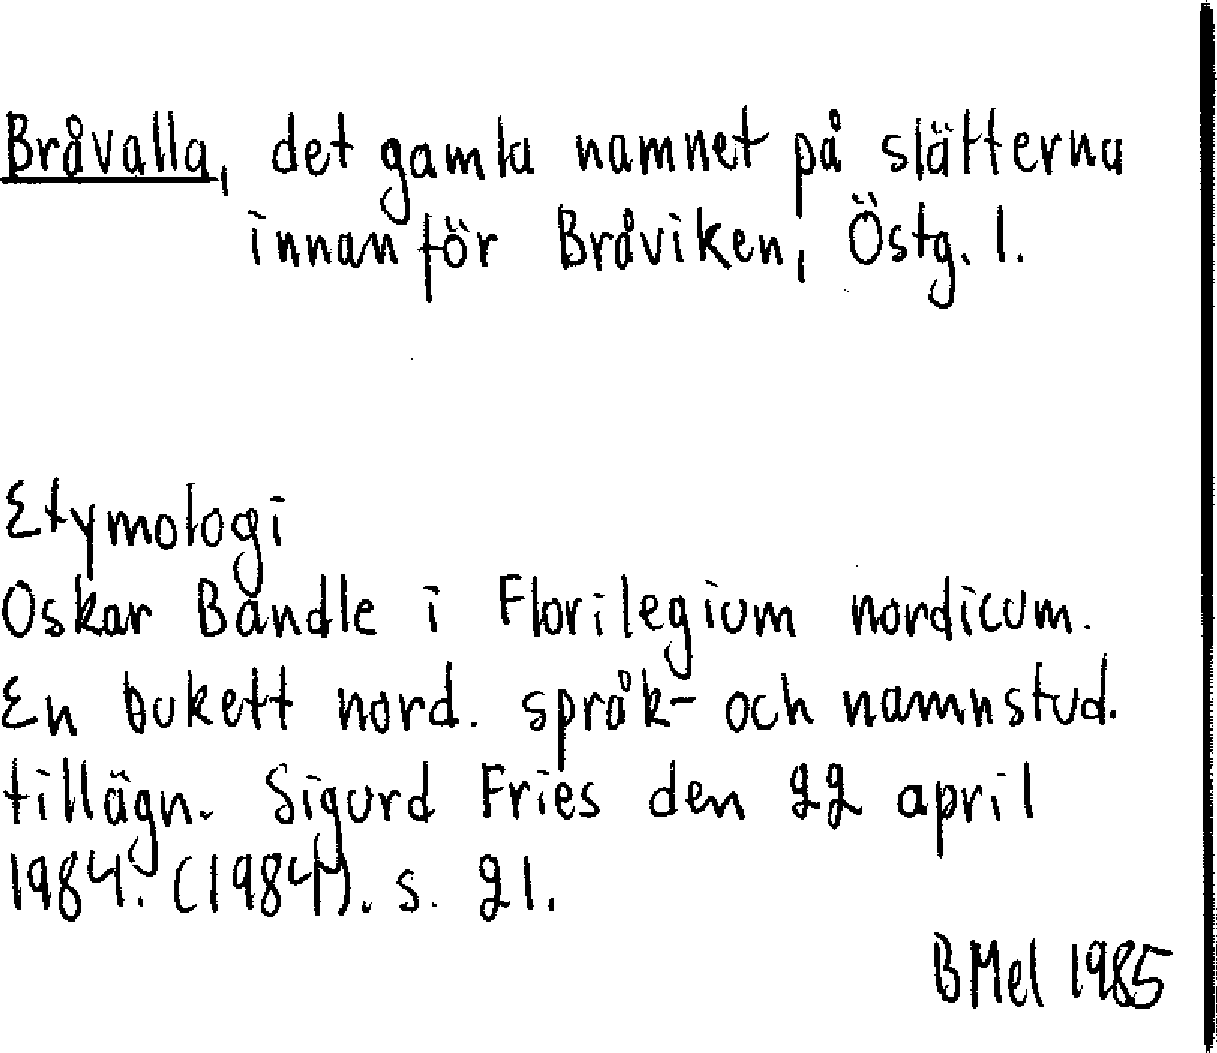 Bråvalla, det gamla namnet på slätterna
innanför Bråviken, Östg. l.
Etymologi
Oskar Bandle i Florilegium nordicum.
En bukett nord. språk- och namnstud.
tillägn. Sigurd Fries den 22 april
1984. (1984). s. 21.
BMel 1985